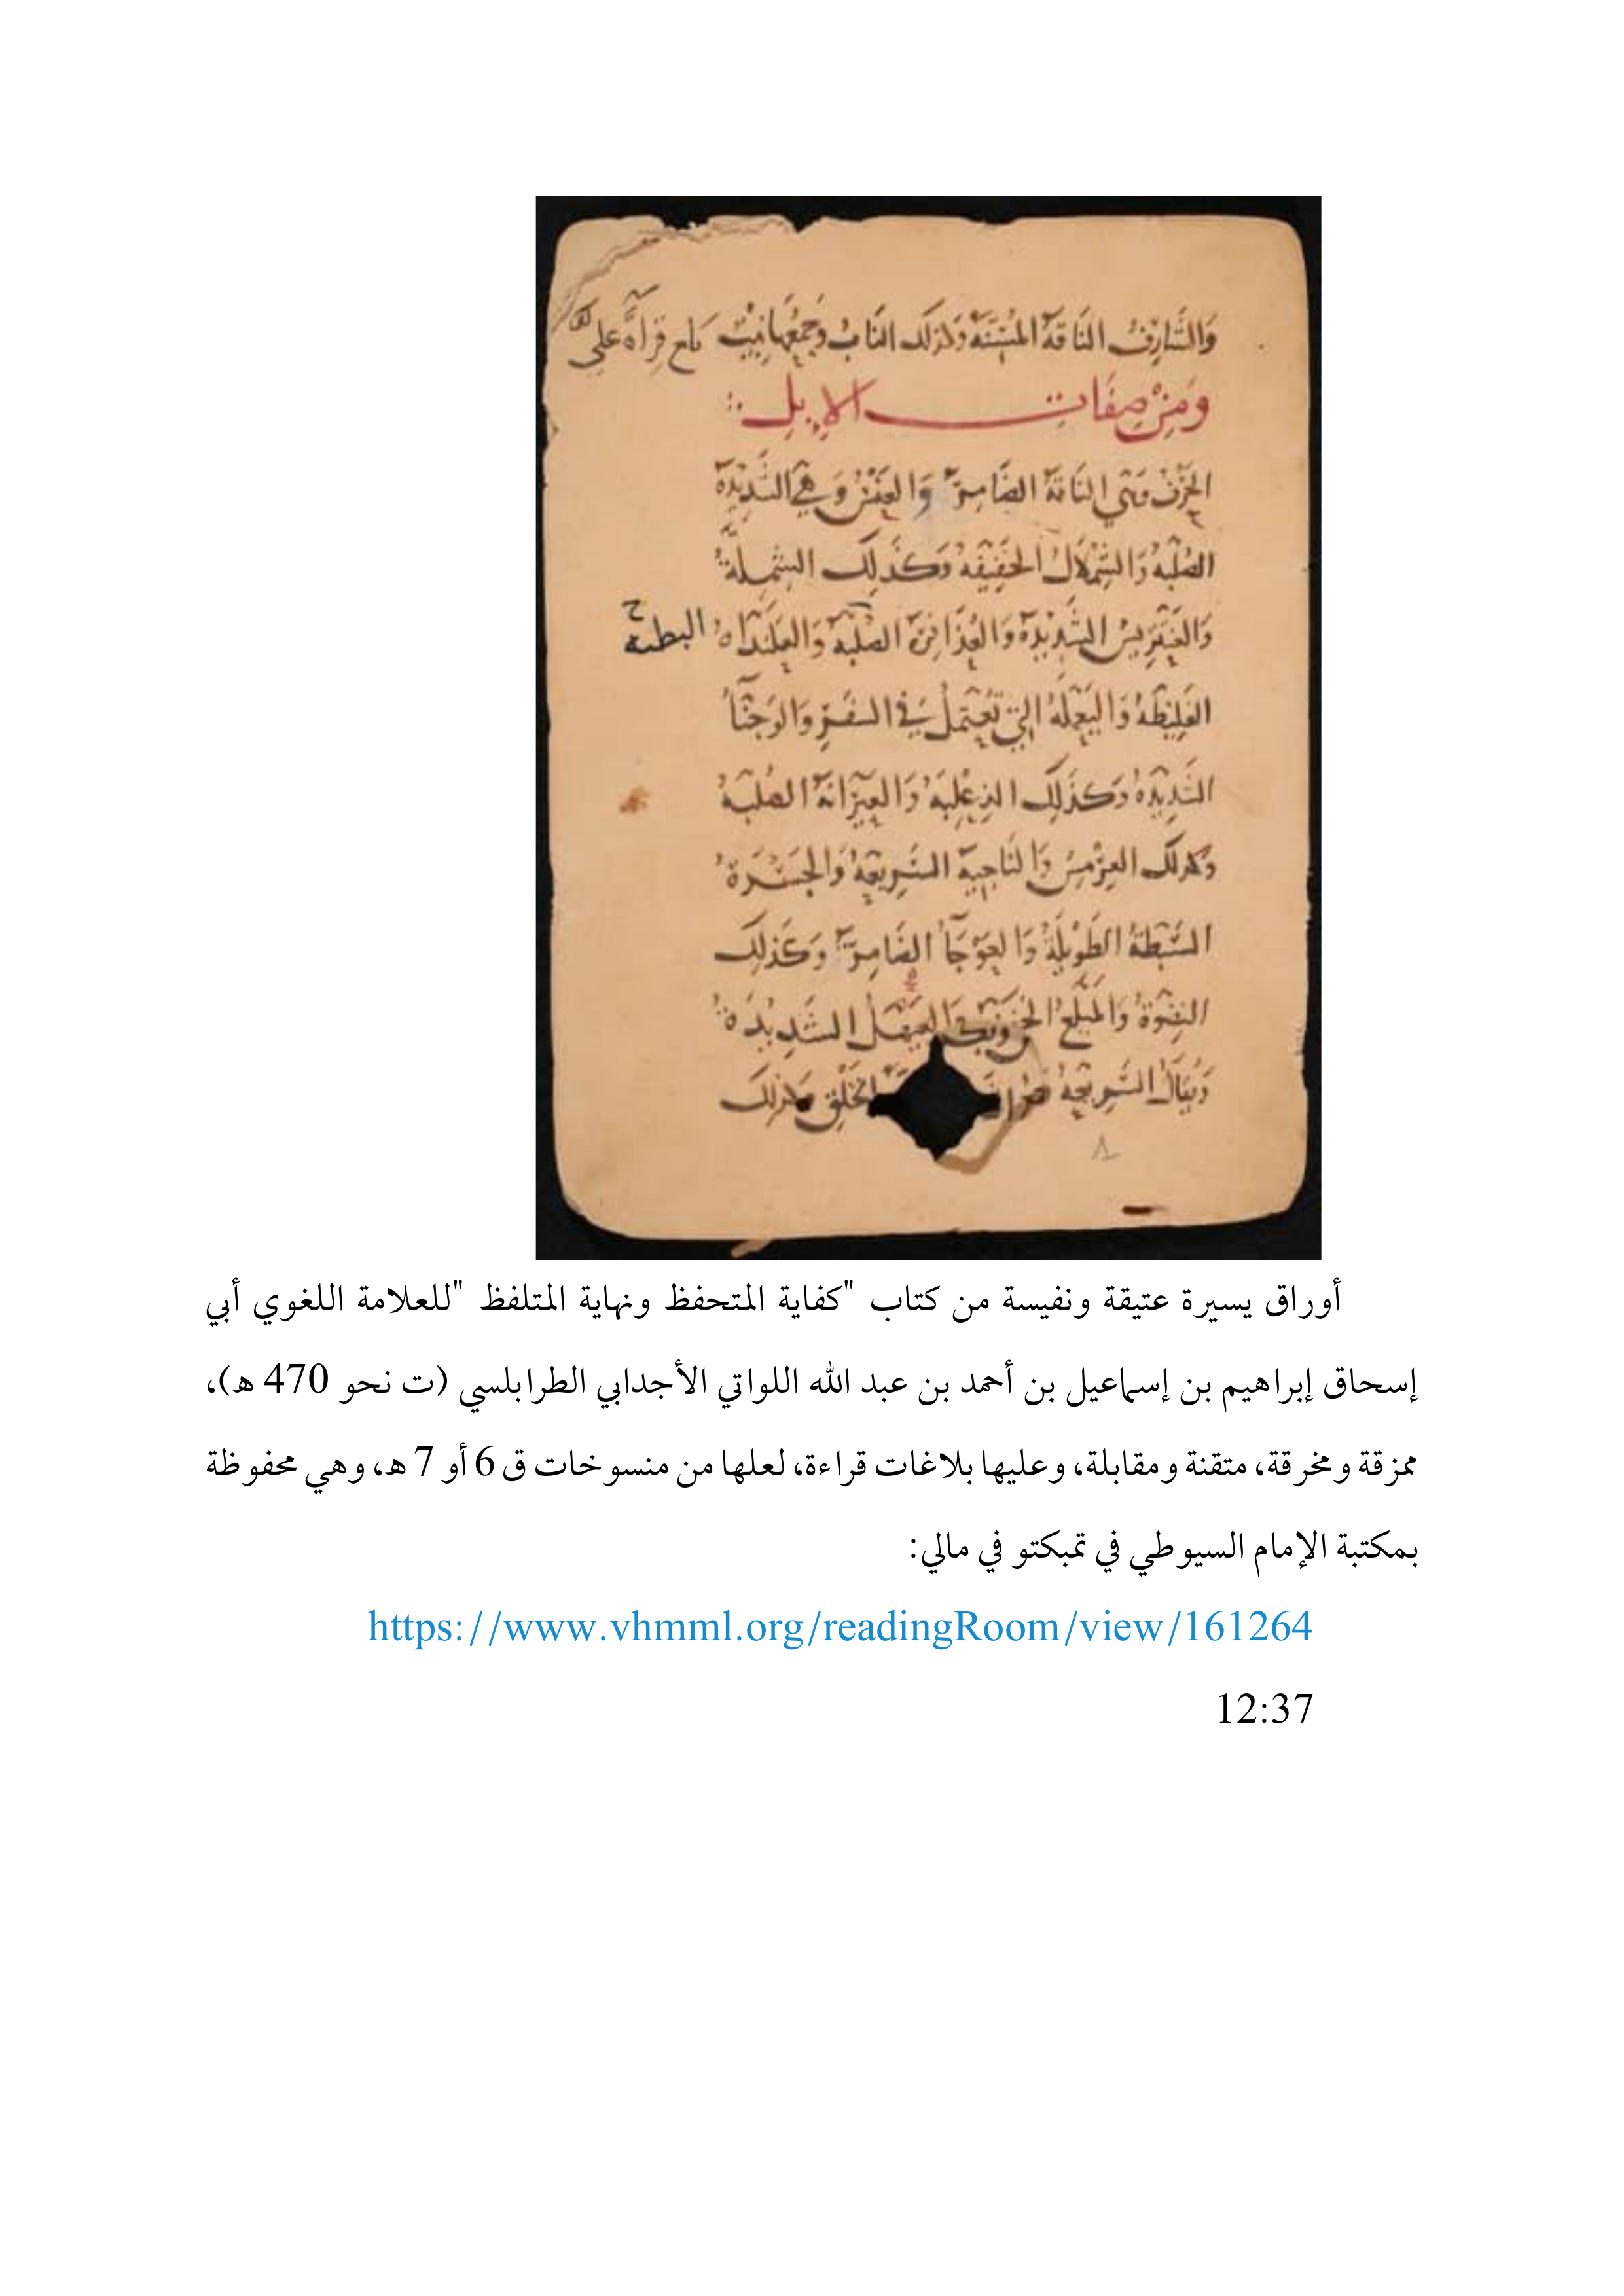 وَالشَّارِفُ النَّاقَةُ المُسِنَّةُ وَكَذلِكَ النَّابُ وَجَمْعُهَا نِيبٌ بلغ قراءة علي
وَمِنْ صِفَاتِ الإِبِلِ
الحَرْفُ وَهْيَ النَّاقَةُ الضَّامِرَةُ وَالعَنْسُ وَهِيَ الشَّدِيدَةُ
الصُّلْبَةُ وَالشِّمْلَالُ الخَفِيفَةُ وَكَذَلِكَ الشِّمِلَّةُ
وَالعَنْتَرِيسُ الشَّدِيدَةُ وَالعُذَافِرَةُ الصُّلْبَةُ وَالعَلَنْدَاةُ
الغَلِيظَةُ وَاليَعْمَلَةُ الَّتِي تُعْتَمَلُ فِي السَّفَرِ وَالوَجْنَآءُ
الشَّدِيدَةُ وَكَذَلِكَ الذِعْلِبَةُ وَالعَيْرَانَةُ الصُّلْبَةُ
وَكَذلِكَ العِرْمِسُ وَالنَّاجِيَةُ السَّرِيعَةُ وَالجَسْرَةُ
السَّبْطَةُ الطَّوِيلَةُ وَالعَوْجَآءُ الضَّامِرَةُ وَكَذَلِكَ
النِضْوَةُ وَالمَيْلَعُ وَالعَيْهَلُ الشَّدِيدَةُ
وَيُقَالُ السَّرِيعَةُ الخَلْقِ وَكَذلِكَ
٨
أوراق يسيرة عتيقة ونفيسة من كتاب "كفاية المتحفظ ونهاية المتلفظ "للعلامة اللغوي أبي
إسحاق إبراهيم بن إسماعيل بن أحمد بن عبد الله اللواتي الأجدابي الطرابلسي (ت نحو 470 هـ)،
ممزقة ومخرقة، متقنة ومقابلة، وعليها بلاغات قراءة، لعلها من منسوخات ق 6 أو 7 هـ، وهي محفوظة
بمكتبة الإمام السيوطي في تمبكتو في مالي:
https://www.vhmml.org/readingRoom/view/161264
12:37